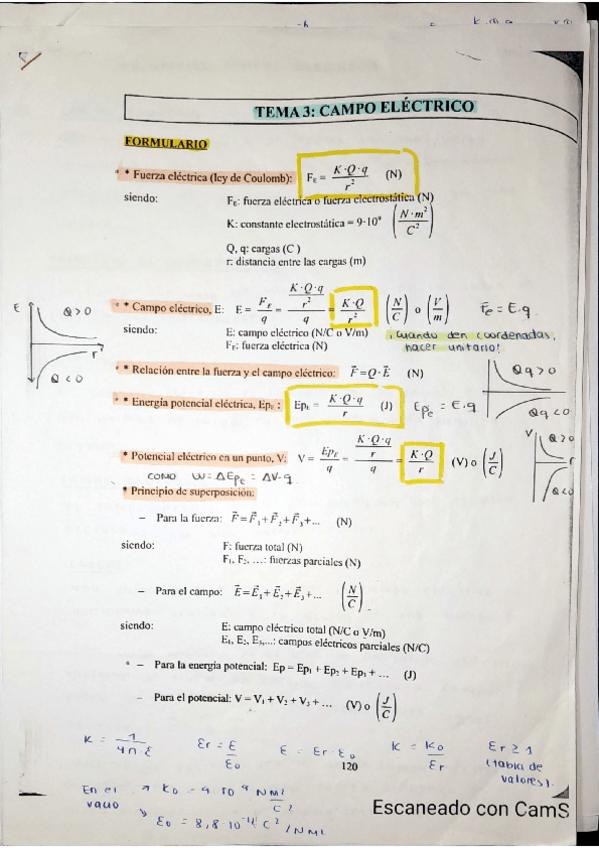 TEMA 3: CAMPO ELÉCTRICO
FORMULARIO
* * Fuerza eléctrica (ley de Coulomb): F_E = K·Q·q / r² (N)
siendo: F_E: fuerza eléctrica o fuerza electrostática (N)
K: constante electrostática = 9·10⁹ (N·m² / C²)
Q, q: cargas (C )
r: distancia entre las cargas (m)
E Q>0 r Q<0
* * Campo eléctrico, E: E = F_E / q = (K·Q·q / r²) / q = K·Q / r² (N/C) o (V/m) F⃗e = E·q
siendo: E: campo eléctrico (N/C o V/m) ¡Cuando den coordenadas,
F_E: fuerza eléctrica (N) hacer unitario!
* * Relación entre la fuerza y el campo eléctrico: F⃗=Q·E⃗ (N) Qq>0
* * Energía potencial eléctrica, Ep_E : Ep_E = K·Q·q / r (J) Ep_e = E·q Qq<0
* Potencial eléctrico en un punto, V: V = Ep_E / q = (K·Q·q / r) / q = K·Q / r (V) o (J/C) V Q>0 r Q<0
como W=ΔEp_e = ΔV·q
* Principio de superposición:
– Para la fuerza: F⃗=F⃗₁+F⃗₂+F⃗₃+... (N)
siendo: F: fuerza total (N)
F₁, F₂, …: fuerzas parciales (N)
– Para el campo: E⃗=E⃗₁+E⃗₂+E⃗₃+... (N/C)
siendo: E: campo eléctrico total (N/C o V/m)
E₁, E₂, E₃,...: campos eléctricos parciales (N/C)
* – Para la energía potencial: Ep = Ep₁ + Ep₂ + Ep₃ + … (J)
– Para el potencial: V = V₁ + V₂ + V₃ + … (V) o (J/C)
K = 1 / 4π·ε εr = ε / ε₀ ε = εr·ε₀ K = K₀ / εr εr ≥ 1
(tabla de
valores).
120
En el vacío → K₀ = 9·10⁹ Nm²/C²
Escaneado con CamS